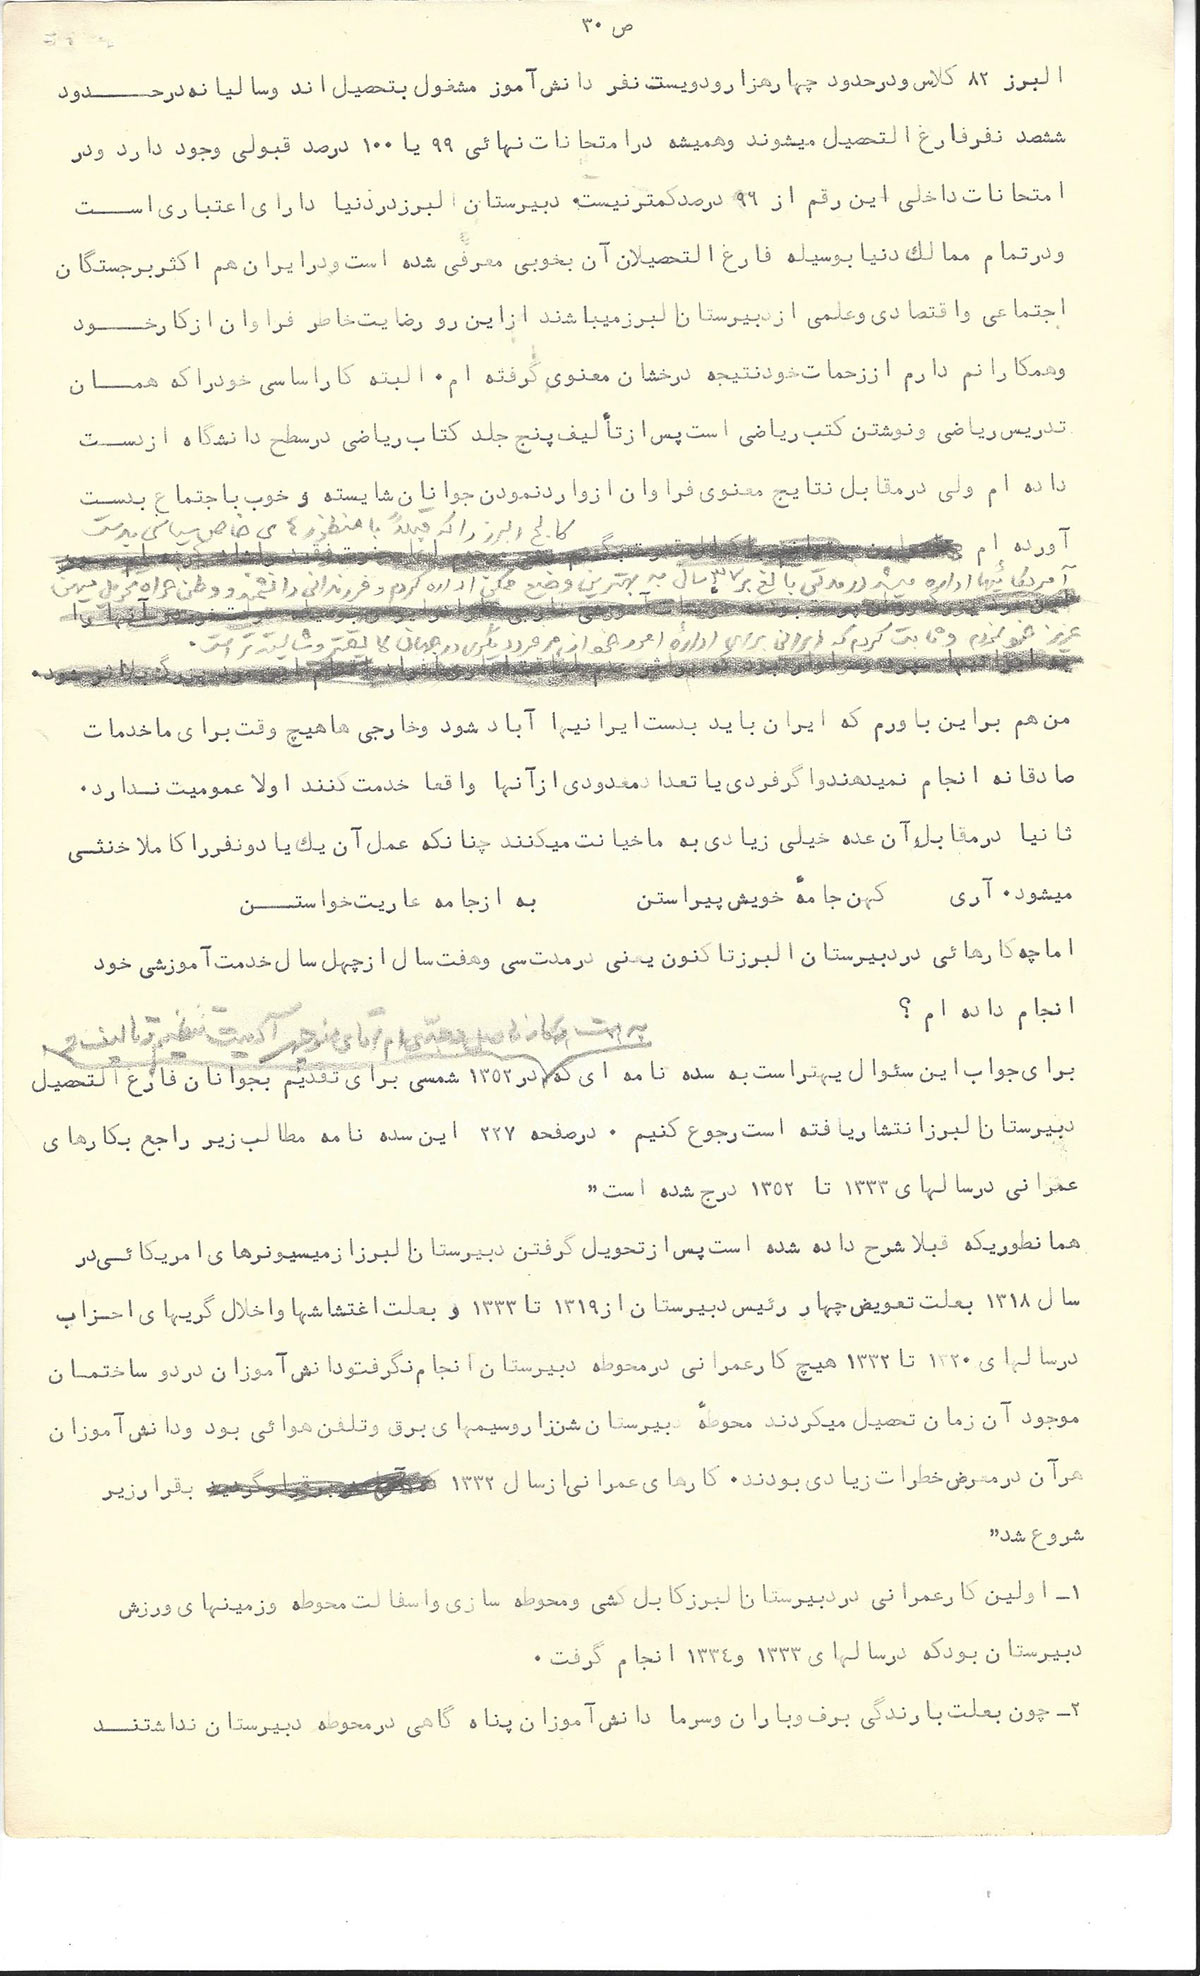 ص ۳۰
البرز ۸۲ کلاس ودرحدود چهارهزارودویست نفر دانش‌آموز مشغول بتحصیل اند وسالیانه درحدود
ششصد نفرفارغ التحصیل میشوند وهمیشه درامتحانات نهائی ۹۹ یا ۱۰۰ درصد قبولی وجود دارد ودر
امتحانات داخلی این رقم از ۹۶ درصدکمترنیست۰ دبیرستان البرزدردنیا دارای اعتباری است
ودرتمام ممالك دنیا بوسیله فارغ التحصیلان آن بخوبی معرفی شده است ودرایران هم اکثربرجستگان
اجتماعی واقتصادی وعلمی ازدبیرستان البرزمیباشند ازاین رو رضایت خاطر فراوان ازکارخود
وهمکارانم دارم اززحمات خودنتیجه درخشان معنوی گرفته ام۰ البته کاراساسی خودراکه همان
تدریس ریاضی ونوشتن کتب ریاضی است پس ازتألیف پنج جلد کتاب ریاضی درسطح دانشگاه ازدست
داده ام ولی درمقابل نتایج معنوی فراوان ازواردنمودن جوانان شایسته و خوب باجتماع بدست
کالج البرز راکه قبلاً با منظورهای خاص سیاسی بدست
آورده ام
آمریکائیها اداره میشد درمدتی بالغ بر ۳۷ سال به بهترین وضع ممکن اداره کردم و فرزندانی دانشمند و وطن خواه تحویل میهن
عزیز خود نمودم و ثابت کردم که ایرانی برای اداره امور خود از هر فرد دیگری در جهان لایقتر و شایسته تر است۰
من هم براین باورم که ایران باید بدست ایرانیها آباد شود وخارجی هاهیچ وقت برای ماخدمات
صادقانه انجام نمیدهند واگرفردی یا تعداد معدودی ازآنها واقعا خدمت کنند اولا عمومیت ندارد۰
ثانیا درمقابل آن عده خیلی زیادی به ماخیانت میکنند چنانکه عمل آن یك یا دونفرراکاملا خنثی
میشود۰ آری کهن جامهٔ خویش پیراستن به ازجامه عاریت خواستن
اماچه کارهائی دردبیرستان البرزتاکنون یعنی درمدت سی وهفت سال ازچهل سال خدمت آموزشی خود
انجام داده ام ؟
آقای منوچهر آدمیت تنظیم و تالیف و
برای جواب این سئوال بهتراست به سده نامه ای که در۱۳۵۲ شمسی برای تقدیم بجوانان فارغ التحصیل
دبیرستان البرزانتشاریافته است رجوع کنیم ۰ درصفحه ۲۲۷ این سده نامه مطالب زیر راجع بکارهای
عمرانی درسالهای ۱۳۳۳ تا ۱۳۵۲ درج شده است"
همانطوریکه قبلا شرح داده شده است پس ازتحویل گرفتن دبیرستان البرزازمیسیونرهای امریکائی در
سال ۱۳۱۸ بعلت تعویض چهار رئیس دبیرستان از۱۳۱۹ تا ۱۳۳۳ و بعلت اغتشاشها واخلال گریهای احزاب
درسالهای ۱۳۲۰ تا ۱۳۳۲ هیچ کارعمرانی درمحوطه دبیرستان انجام نگرفت ودانش‌آموزان دردو ساختمان
موجود آن زمان تحصیل میکردند محوطهٔ دبیرستان شن‌زاروسیمهای برق وتلفن هوائی بود ودانش‌آموزان
هرآن درمعرض خطرات زیادی بودند۰ کارهای عمرانی ازسال ۱۳۳۲ بقرارزیر
شروع شد"
۱ـ اولین کارعمرانی دردبیرستان البرزکابل کشی ومحوطه سازی واسفالت محوطه وزمینهای ورزش
دبیرستان بودکه درسالهای ۱۳۳۳ و۱۳۳۴ انجام گرفت ۰
۲ـ چون بعلت بارندگی برف وباران وسرما دانش‌آموزان پناه گاهی درمحوطه دبیرستان نداشتند